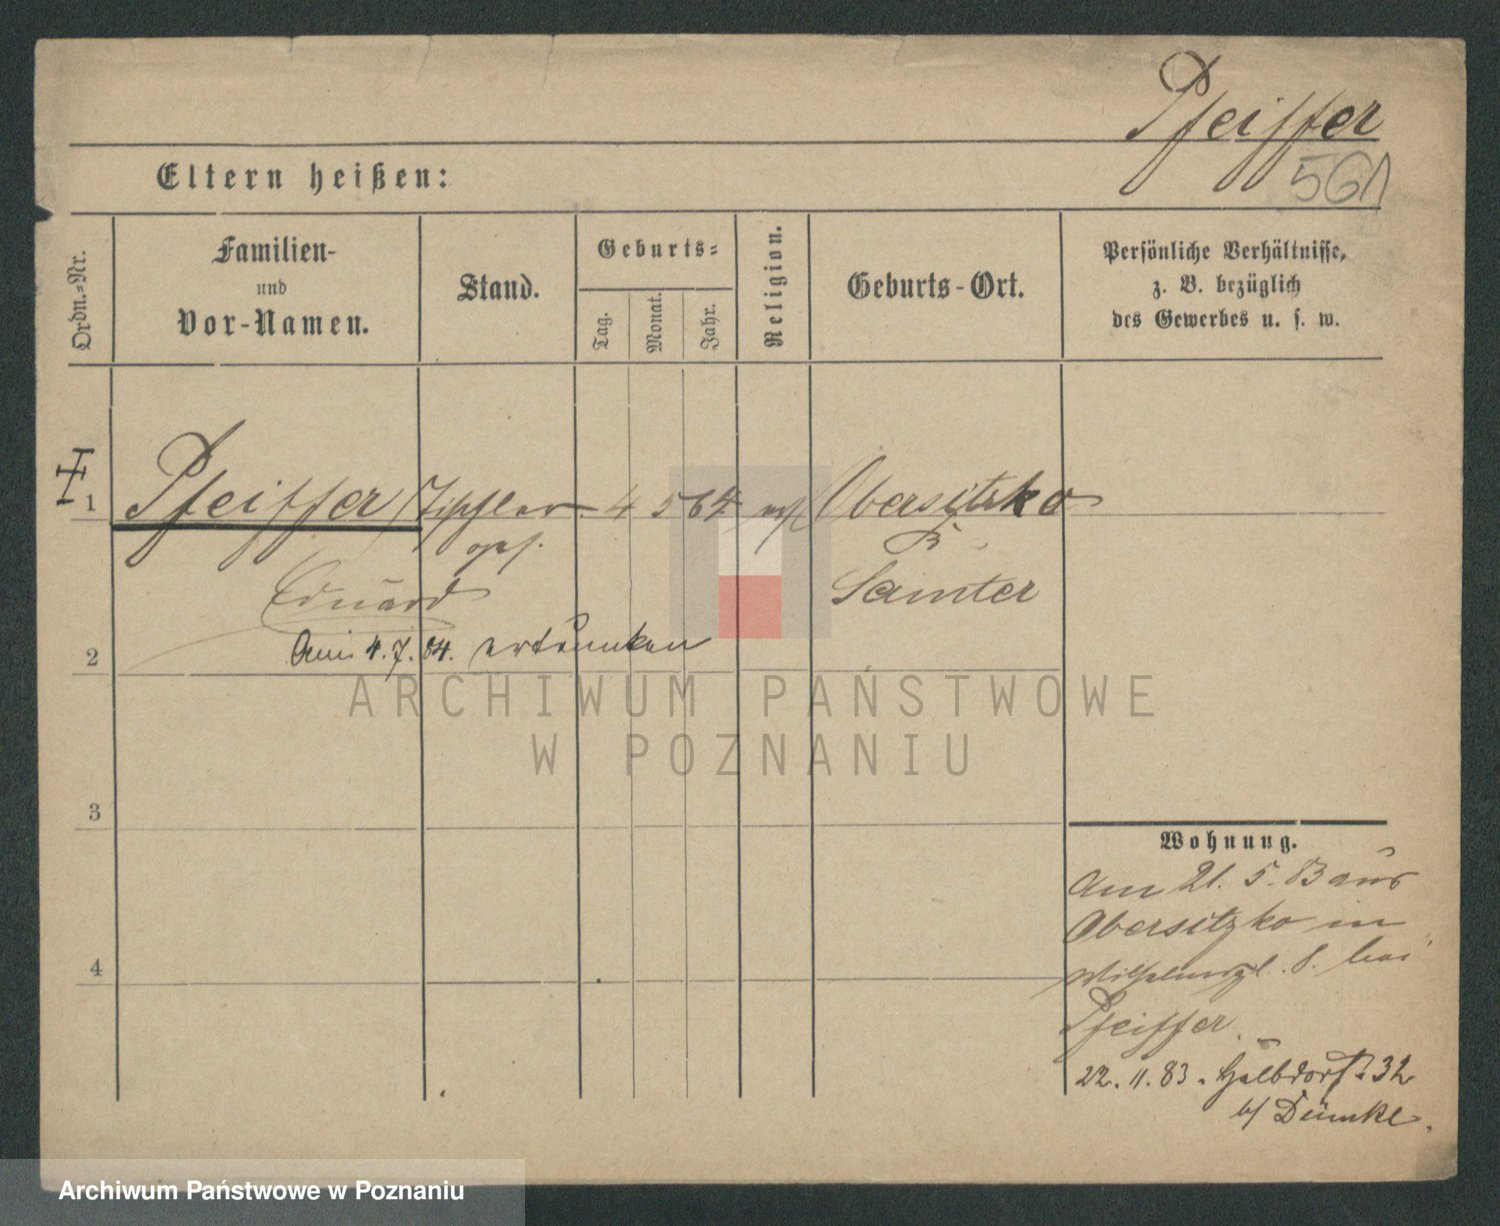 Pfeiffer
561
Eltern heißen:
Ordn.-Nr.
Familien-
und
Vor-Namen.
Stand.
Geburts-
Tag.
Monat.
Jahr.
Religion.
Geburts-Ort.
Persönliche Verhältnisse,
z. B. bezüglich
des Gewerbes u. s. w.
1 Pfeiffer Tischler 4 5 64 Obersitzko
Samter
Eduard
Am 4.7.84. ertrunken
2
3
4
Wohnung.
Am 21. 5. 83 aus
Obersitzko in
8. bei
Pfeiffer
22. 11. 83. Halbdorfst. 32
b/ Dümke.
ARCHIWUM PAŃSTWOWE
W POZNANIU
Archiwum Państwowe w Poznaniu